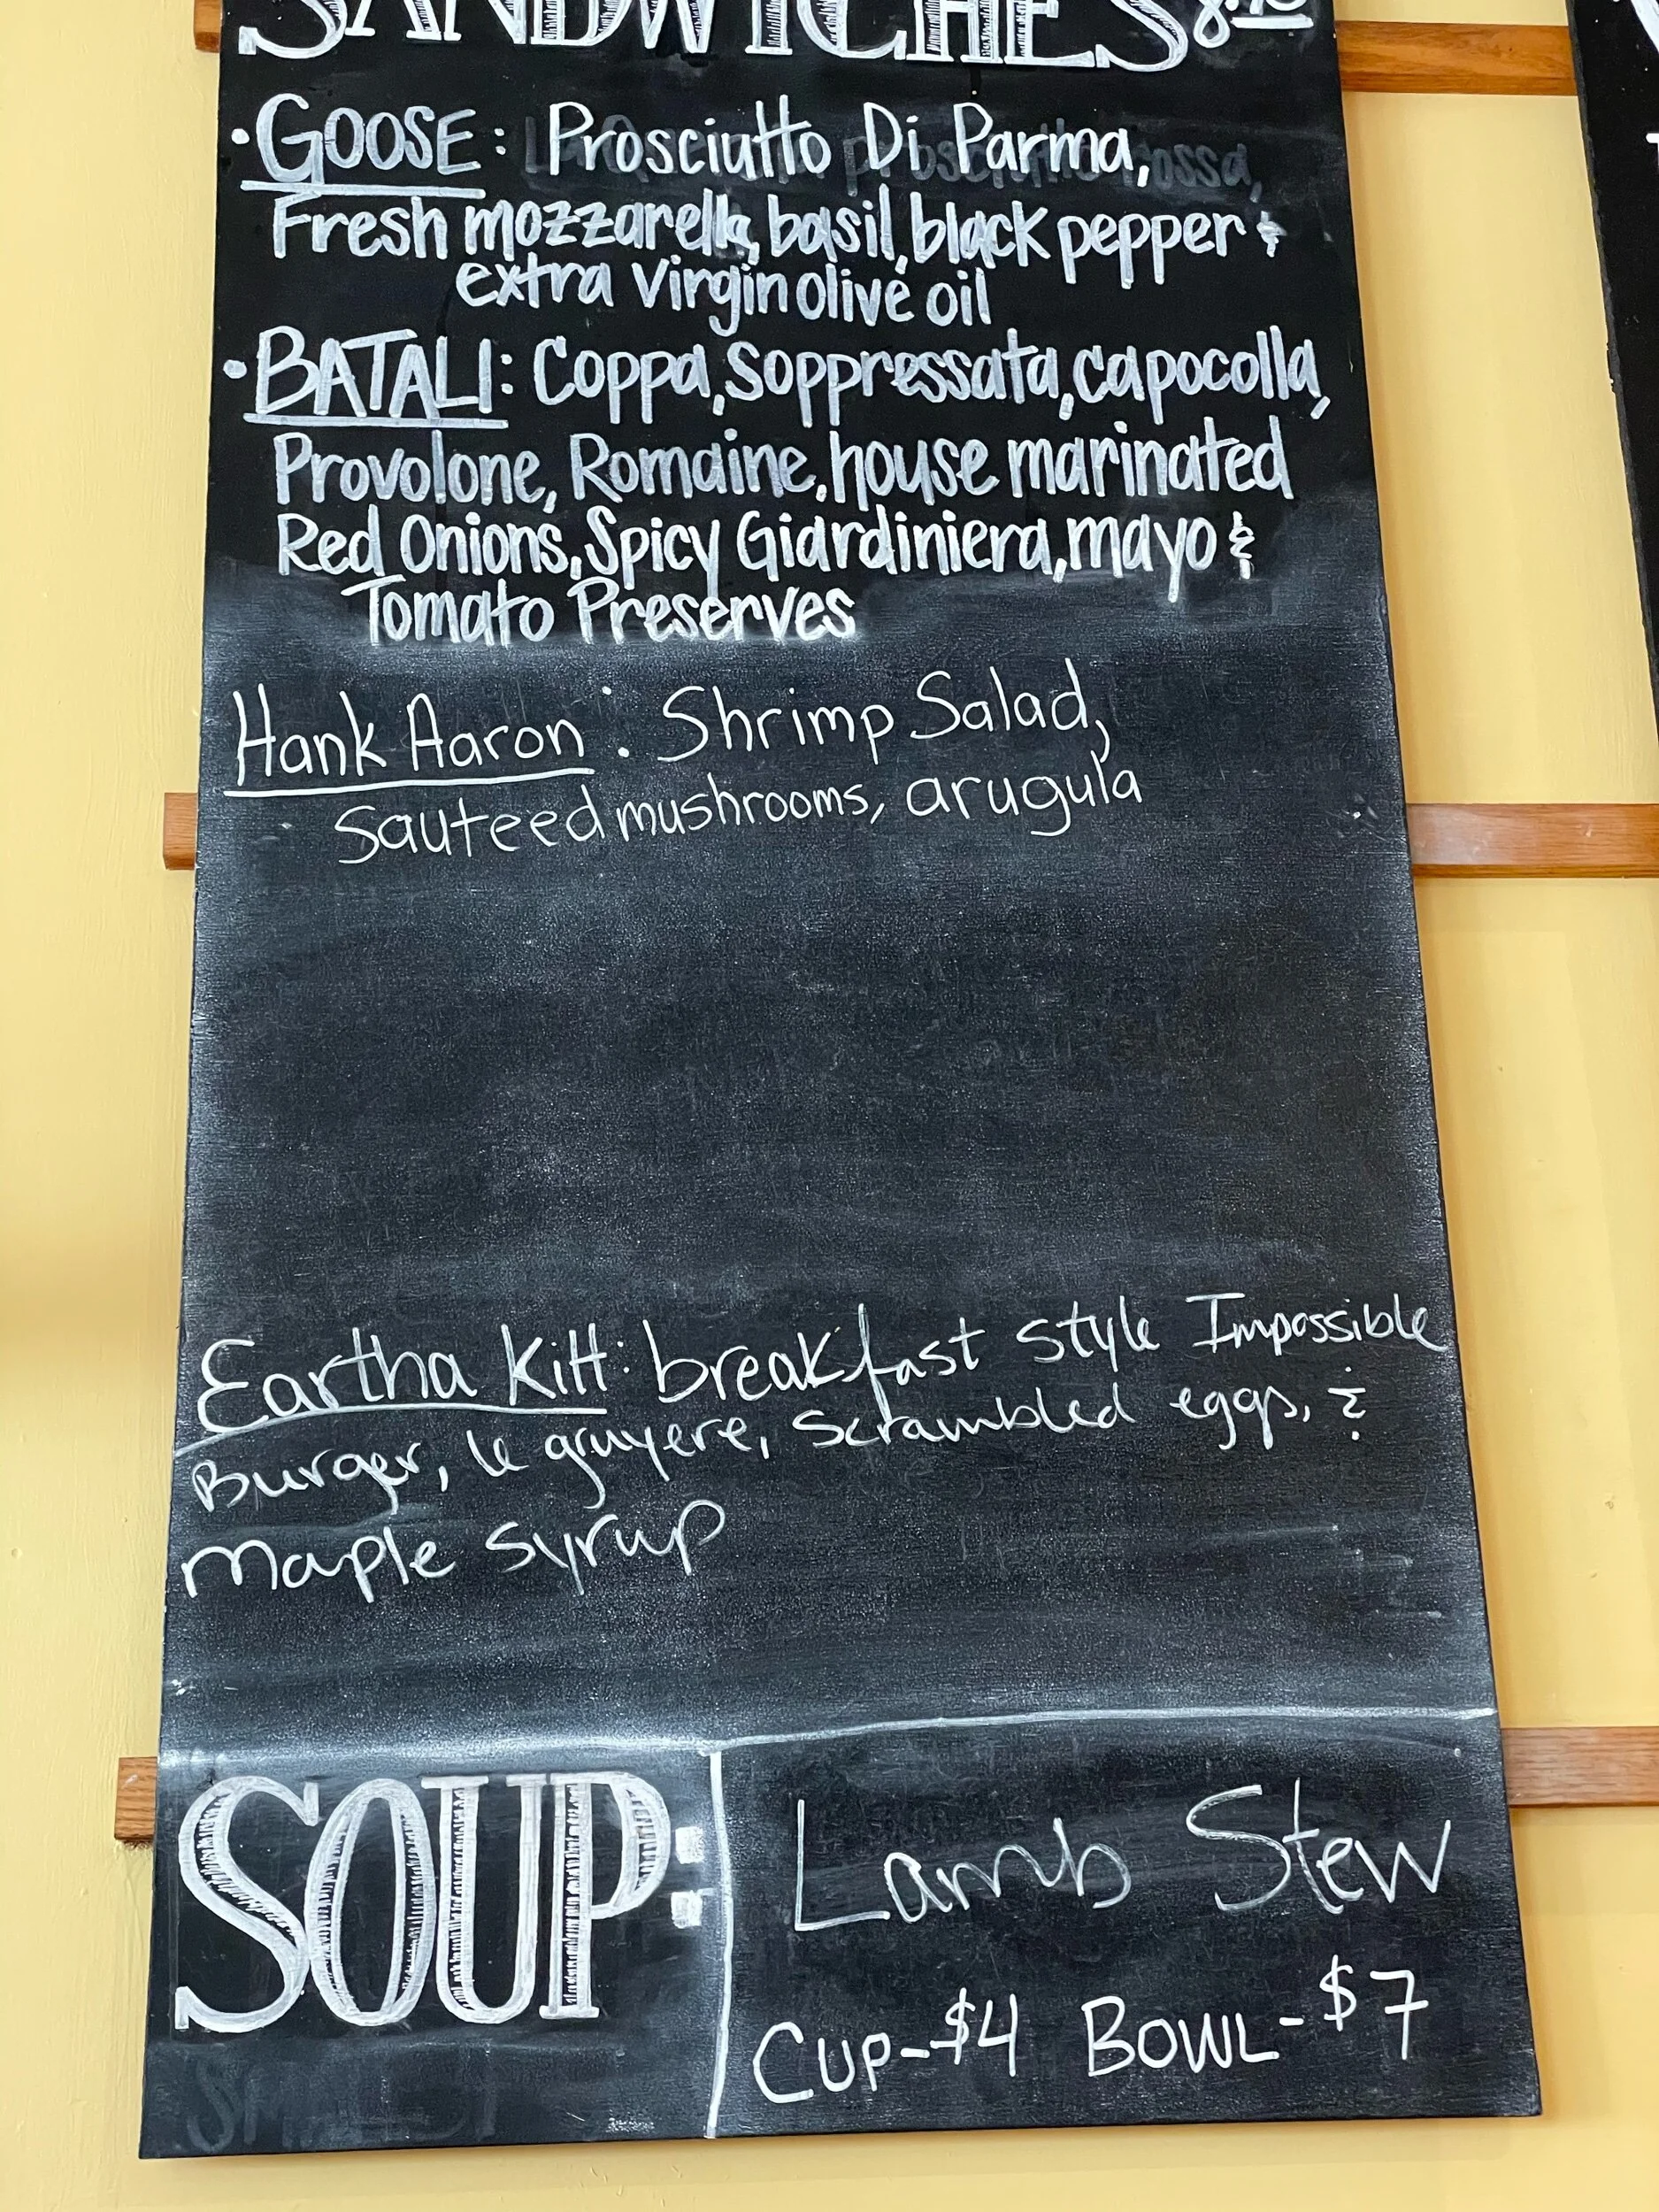 SANDWICHES
• GOOSE: Prosciutto Di Parma,
Fresh mozzarella, basil, black pepper &
extra virgin olive oil
• BATALI: Coppa, Soppressata, capocolla,
Provolone, Romaine, house marinated
Red Onions, Spicy Giardiniera, mayo &
Tomato Preserves
Hank Aaron: Shrimp Salad,
Sauteed mushrooms, arugula
Eartha Kitt: breakfast style Impossible
Burger, le gruyere, scrambled eggs, &
Maple syrup
SOUP:
Lamb Stew
Cup-$4 Bowl-$7